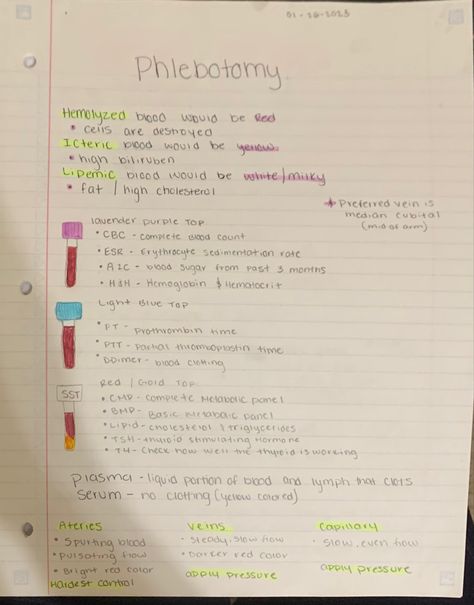 01-26-2023
Phlebotomy
Hemolyzed blood would be Red
• cells are destroyed
Icteric blood would be yellow
• high biliruben
Lipemic blood would be white/milky
• fat / high cholesterol
* Preferred vein is
median cubital
(mid of arm)
lavender purple TOP
• CBC - complete Blood count
• ESR - Erythrocyte sedimentation rate
• A1C - blood sugar from past 3 months
• H&H - Hemoglobin & Hematocrit
Light Blue TOP
• PT - Prothrombin time
• PTT - Partial thromboplastin time
• DDimer - blood clotting
Red / Gold TOP
SST
• CMP - complete Metabolic panel
• BMP - Basic Metabolic panel
• Lipid - cholesterol & triglycerides
• TSH - thyroid stimulating Hormone
• T4 - Check how well the thyroid is working
plasma - liquid portion of blood and lymph that clots
serum - no clotting (yellow colored)
Ateries
• spurting blood
• pulsating flow
• Bright red color
Hardest control
veins
• steady, slow flow
• Darker red color
apply pressure
capillary
• slow, even flow
apply pressure